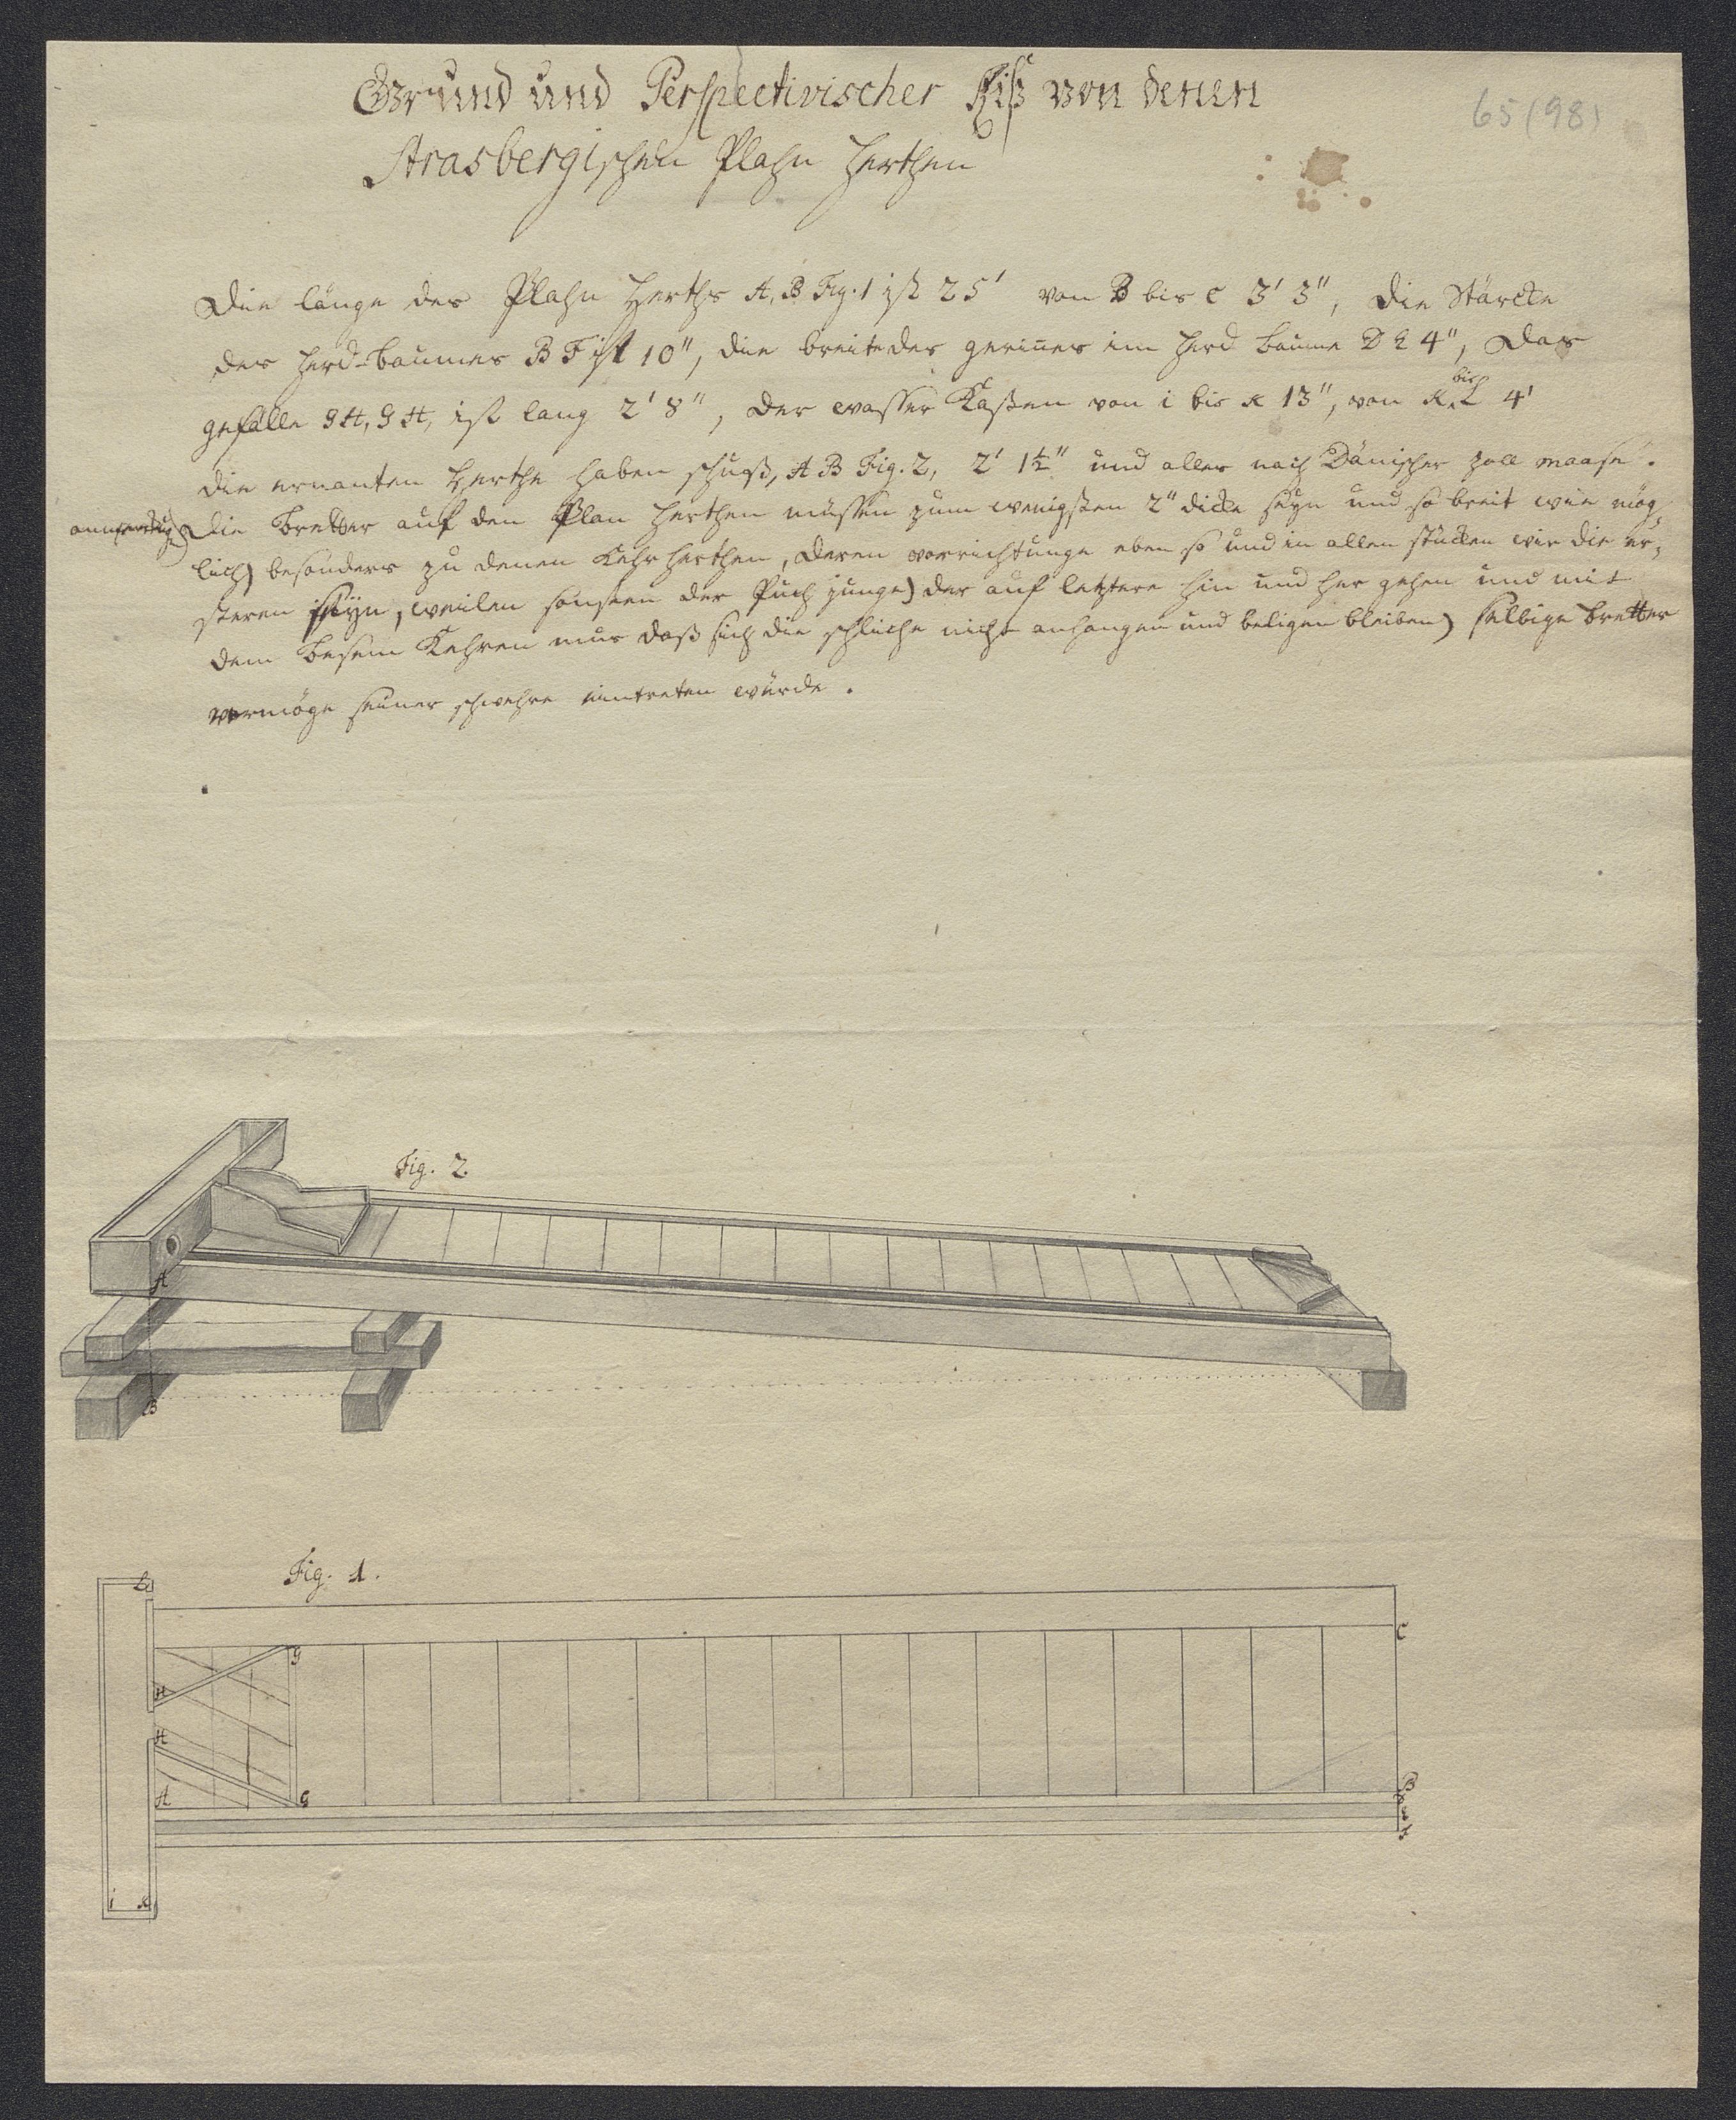 Grund und Perspectivischer Riß von denen
Strasbergischen Plahn Herthen
65 (98)
Die länge des Plahn Herths A, B Fig. 1 ist 25' von B bis C 3' 3", die Stärcke
des Herd-baumes B F ist 10", die breite des gerines im Herd baume D E 4", das
gefälle G H, G H, ist lang 2' 8", der wasser Kasten von i bis K 13", von K bis L 4'
die ernanten Herthe haben schuß, A B Fig. 2, 2' 1½" und alles nach Dänischer zoll maase.
Die bretter auf den Plan Herthen müssen zum wenigsten 2" dicke seyn und so breit wie mög-
lich) besonders zu denen Kehr Herthen, deren vorrichtunge eben so und in allen stücken wie die er-
steren seyn, weilen sonsten der Puch junge) der auf letztere hin und her gehen und mit
dem besem Kehren mus daß sich die schliche nicht anhangen und beligen bleiben) selbige bretter
vermöge seiner schwehre eintreten würde.
Fig. 2
A
B
Fig. 1.
L
C
G
H
H
A
G
B
D
E
F
i K